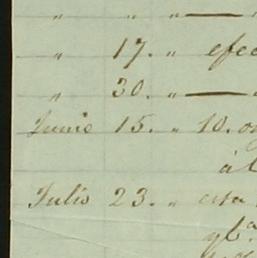 " " " —
" 17. " efec
" 30. " —
Junio 15. " 10. o
á
Julio 23. " esta